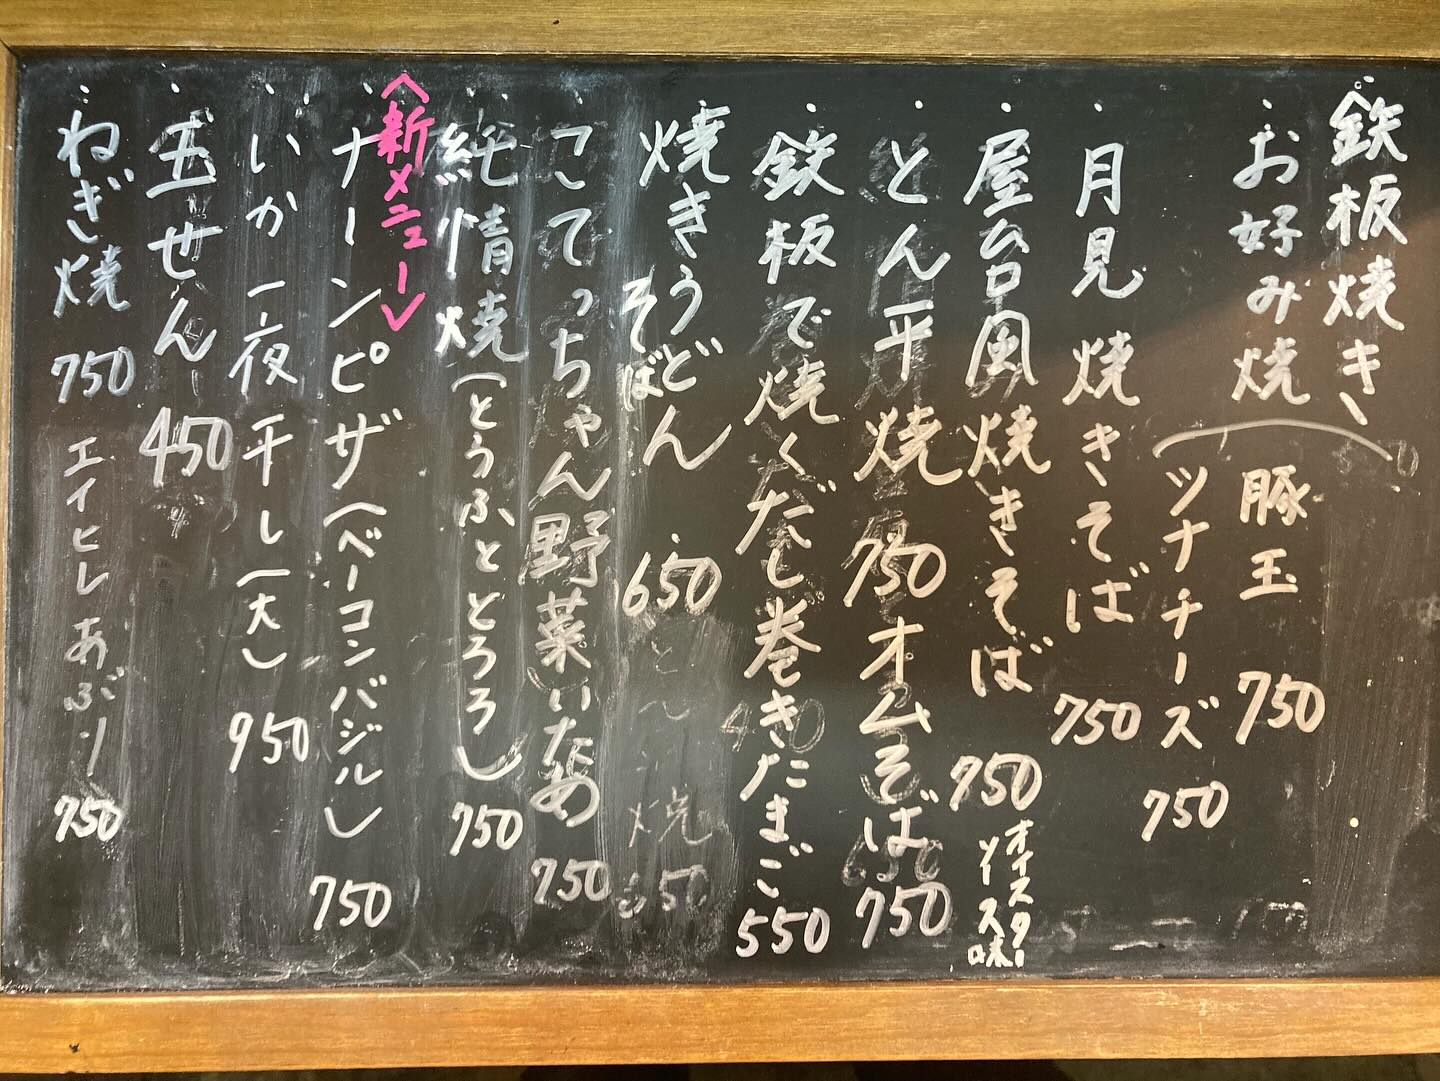 鉄板焼き
・お好み焼
豚玉 750
ツナチーズ 750
・月見焼きそば 750
・屋台風焼きそば 750 オイスター
ソース味
・とん平焼 750 オムそば 750
・鉄板で焼くだし巻きたまご 550
・焼きうどん 650
そば
・こてっちゃん野菜いため 750
・純情焼(とうふととろろ) 750
<新メニュー>
・ナーンピザ(ベーコンバジル) 750
・いか一夜干し(大) 950
・玉せん 450
・ねぎ焼 750 エイヒレあぶり 750